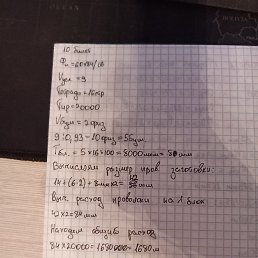 10 билет
Фн=60×84/16
Vул = 9
Vтетради = 16 стр
Тир=20000
Vбум = 2 физ
9 : 0,93 - 10 физ = 5 бум.
Тбл. = 5×16×100 = 8000 мкм = 8 мм
Вычисляем размер пров. заготовки:
14+(6·2)+8мм×2= 42 мм
Выч. расход проволоки на 1 блок
42×2=84мм
Находим общий расход
84×20000=1680000=1680м